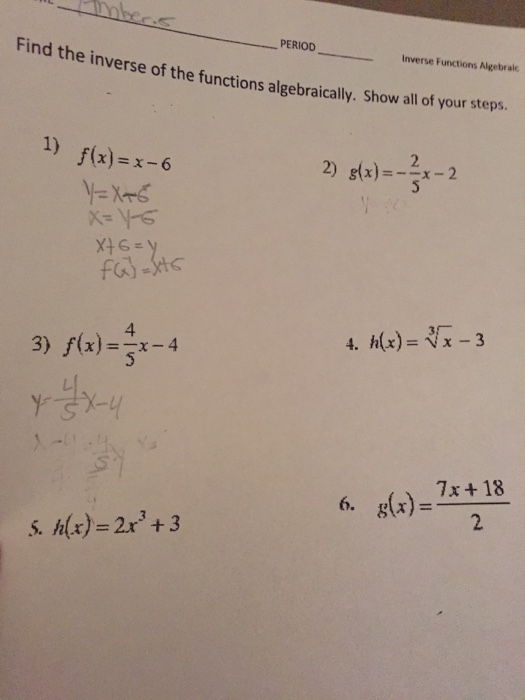 Amber.s
PERIOD
Inverse Functions Algebraic
Find the inverse of the functions algebraically. Show all of your steps.
1) f(x) = x − 6
2) g(x) = −2/5 x − 2
y = x − 6
x = y − 6
x + 6 = y
f(x) = x + 6
3) f(x) = 4/5 x − 4
4. h(x) = ∛x − 3
y = 4/5 x − 4
5. h(x) = 2x³ + 3
6. g(x) = 7x + 18 / 2